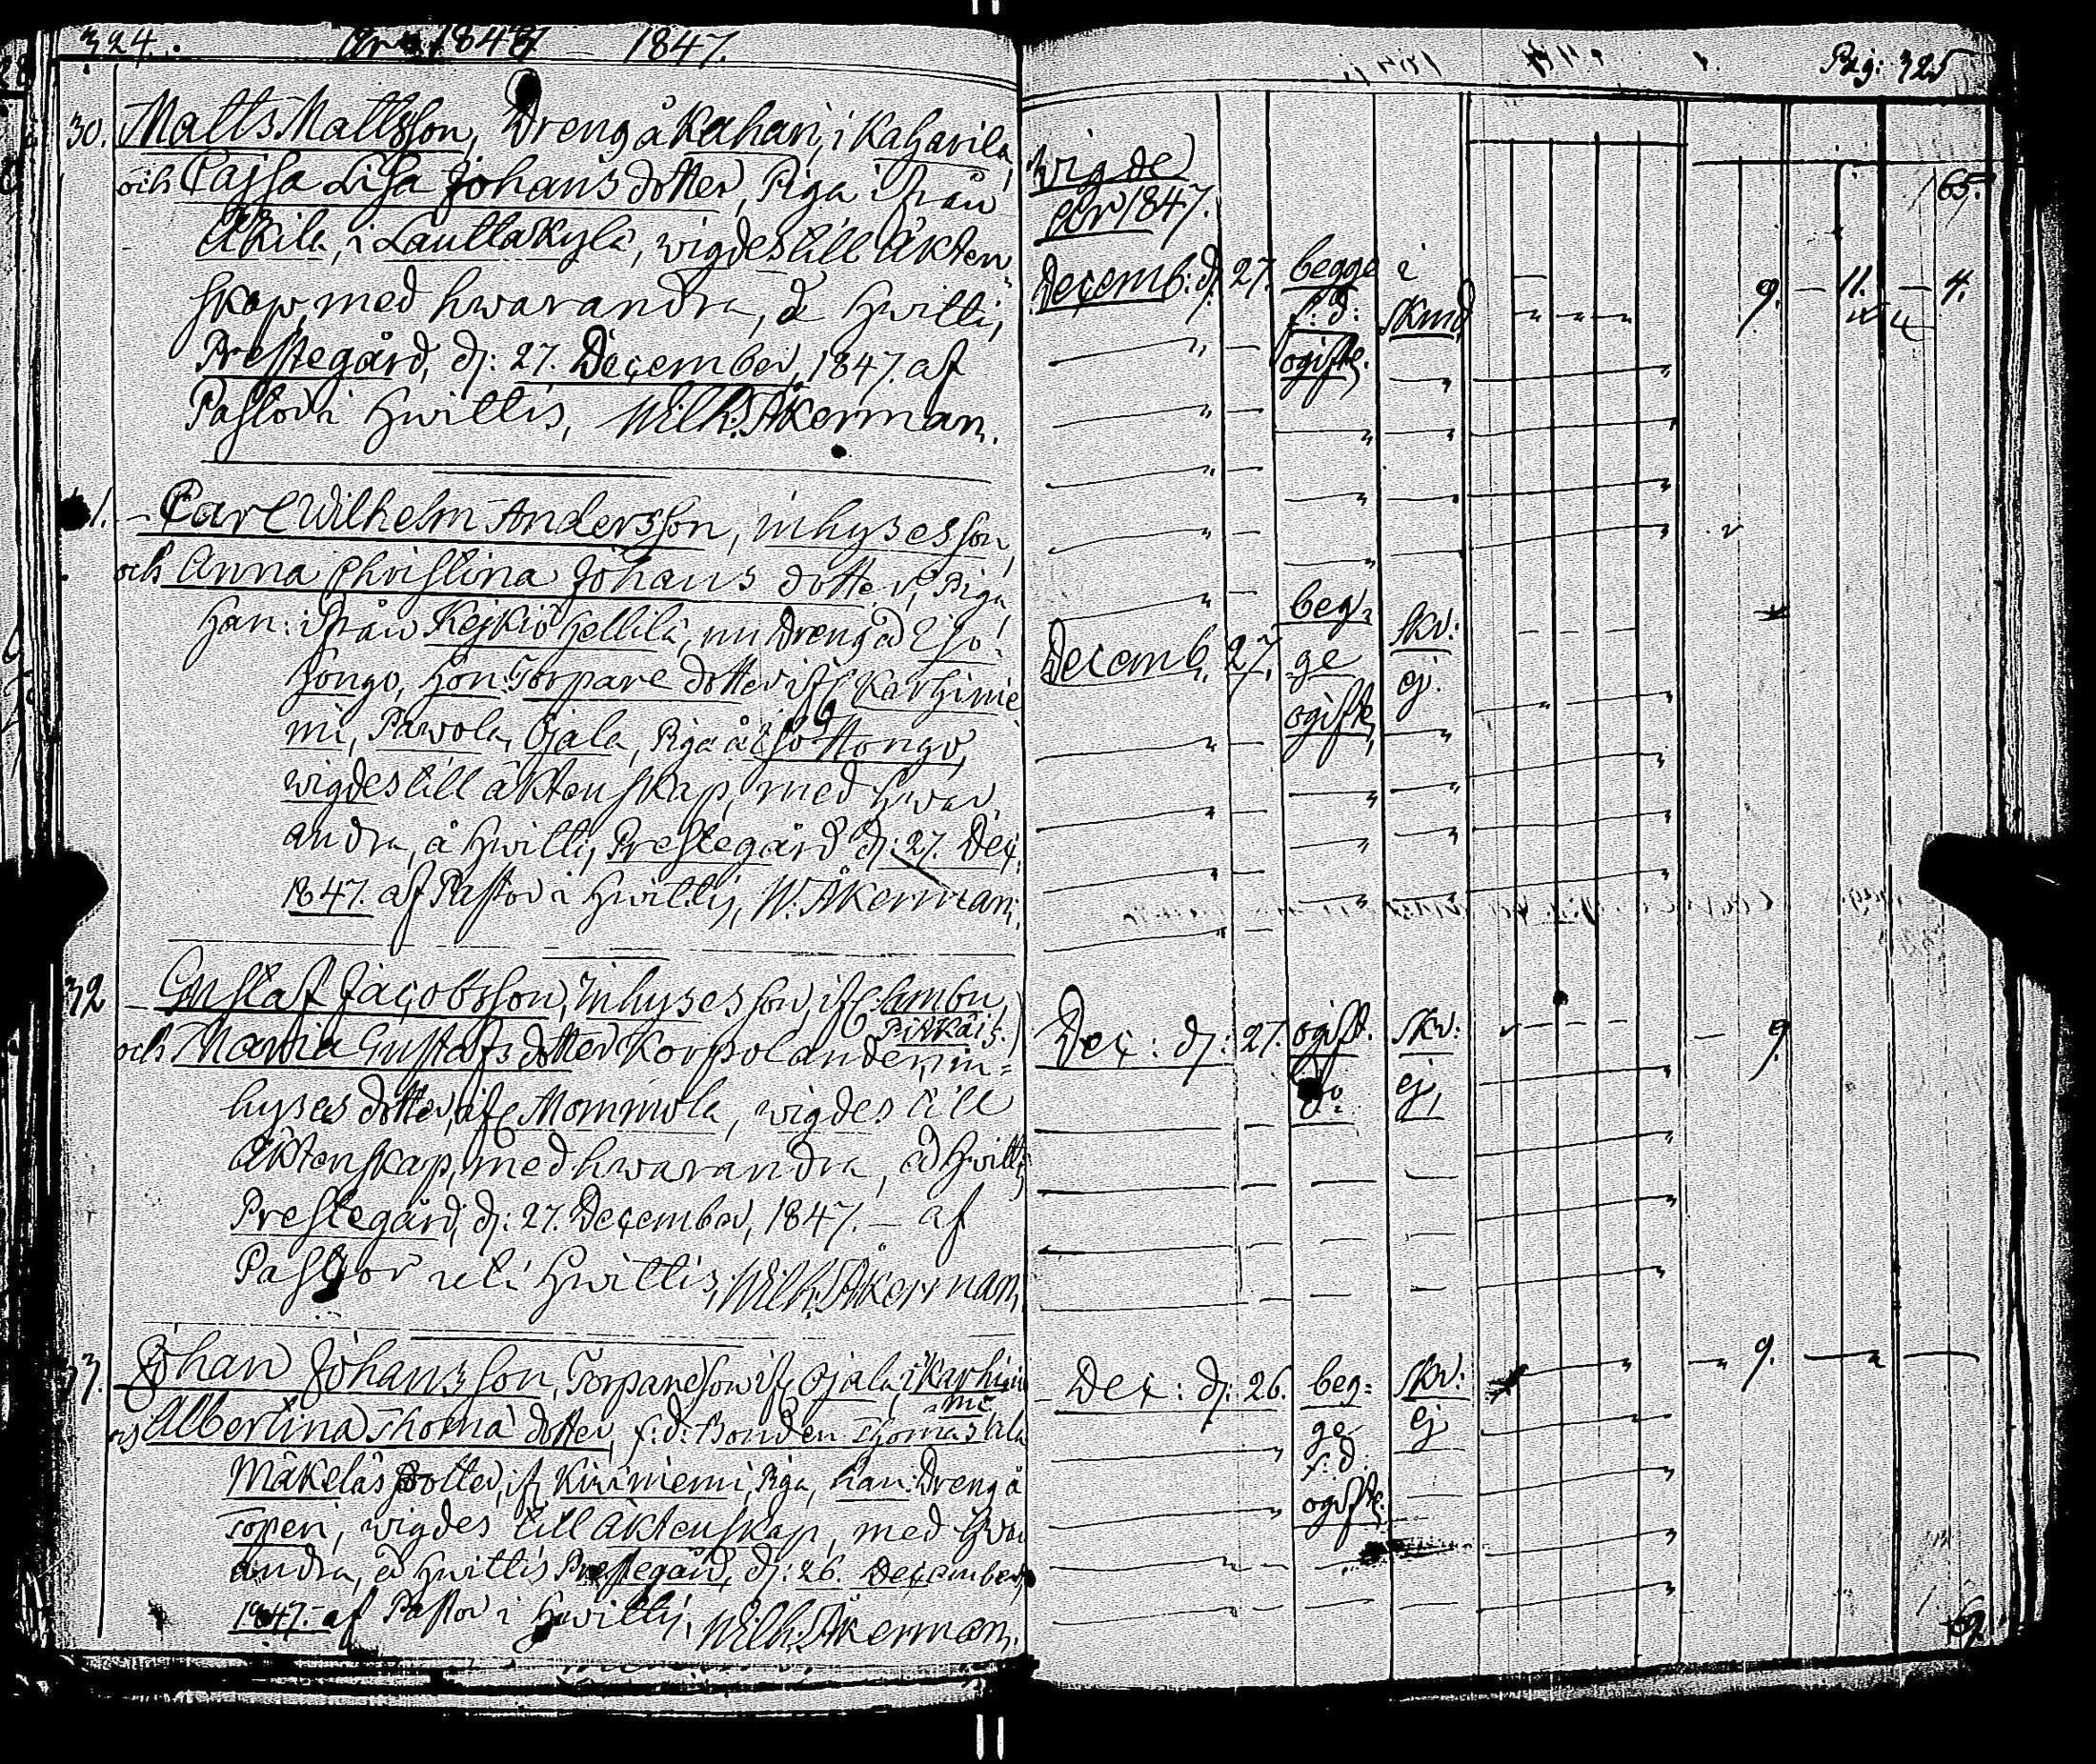 324. 1847.
30. Matts Mattsson, Dreng å Kahari, i Kaharila,
och Cajsa Lisa Johans dotter, Piga ifrån
Äkilä, i Lauttakylä, wigdes till Äkten-
skap, med hwarandra, å Hwittis
Prestegård, d: 27. December, 1847. af
Pastor i Hwittis, Wilh. Åkerman.
1. Carl Wilhelm Andersson, inhysesson,
och Anna Christina Johans dotter, Piga
Han: ifrån Kejkiö Hellilä, nu Dreng å Iso
Hongo, Hon: Torpare dotter if: Karhinie
mi, Pawola, Ojala, Piga å Iso Hongo,
wigdes till äktenskap, med hwar
andra, å Hwittis Prestegård d: 27. Dec:
1847. af Pastor i Hwittis, W. Åkerman.
32 Gustaf Jacobsson, Inhysesson, if: Sambu,
och Maria Gustafs dotter Korpolander, in=
hyses dotter, if: Mommola, wigdes till
Äktenskap, med hwarandra, å Hwittis
Prestegård, d: 27. December, 1847. – af
Pastor i Hwittis, Wilh. Åkerman,
33. Johan Johansson, Torpareson if: Ojala, i Karhinie
mi
och Albertina Thomæ dotter, f: d: Bonden Thomas
Mäkeläs dotter, if: Kiviniemi, Piga, han: Dreng å
wigdes till äktenskap, med hwar
andra, å Hwittis Prestegård, d: 26. December,
1847. af Pastor i Hwittis, Wilh. Åkerman.
Pag: 325
wigde
år 1847.
165.
Decemb: d: 27. begge i 9. – 11. – 4.
f: d:
ogifte.
Decemb. 27. beg- skr:
ge ej.
ogifte,
Dec: d: 27. ogift. skr: 9.
do: ej,
Dec: d: 26. beg= skr: 9.
ge ej
f: d:
ogifte.